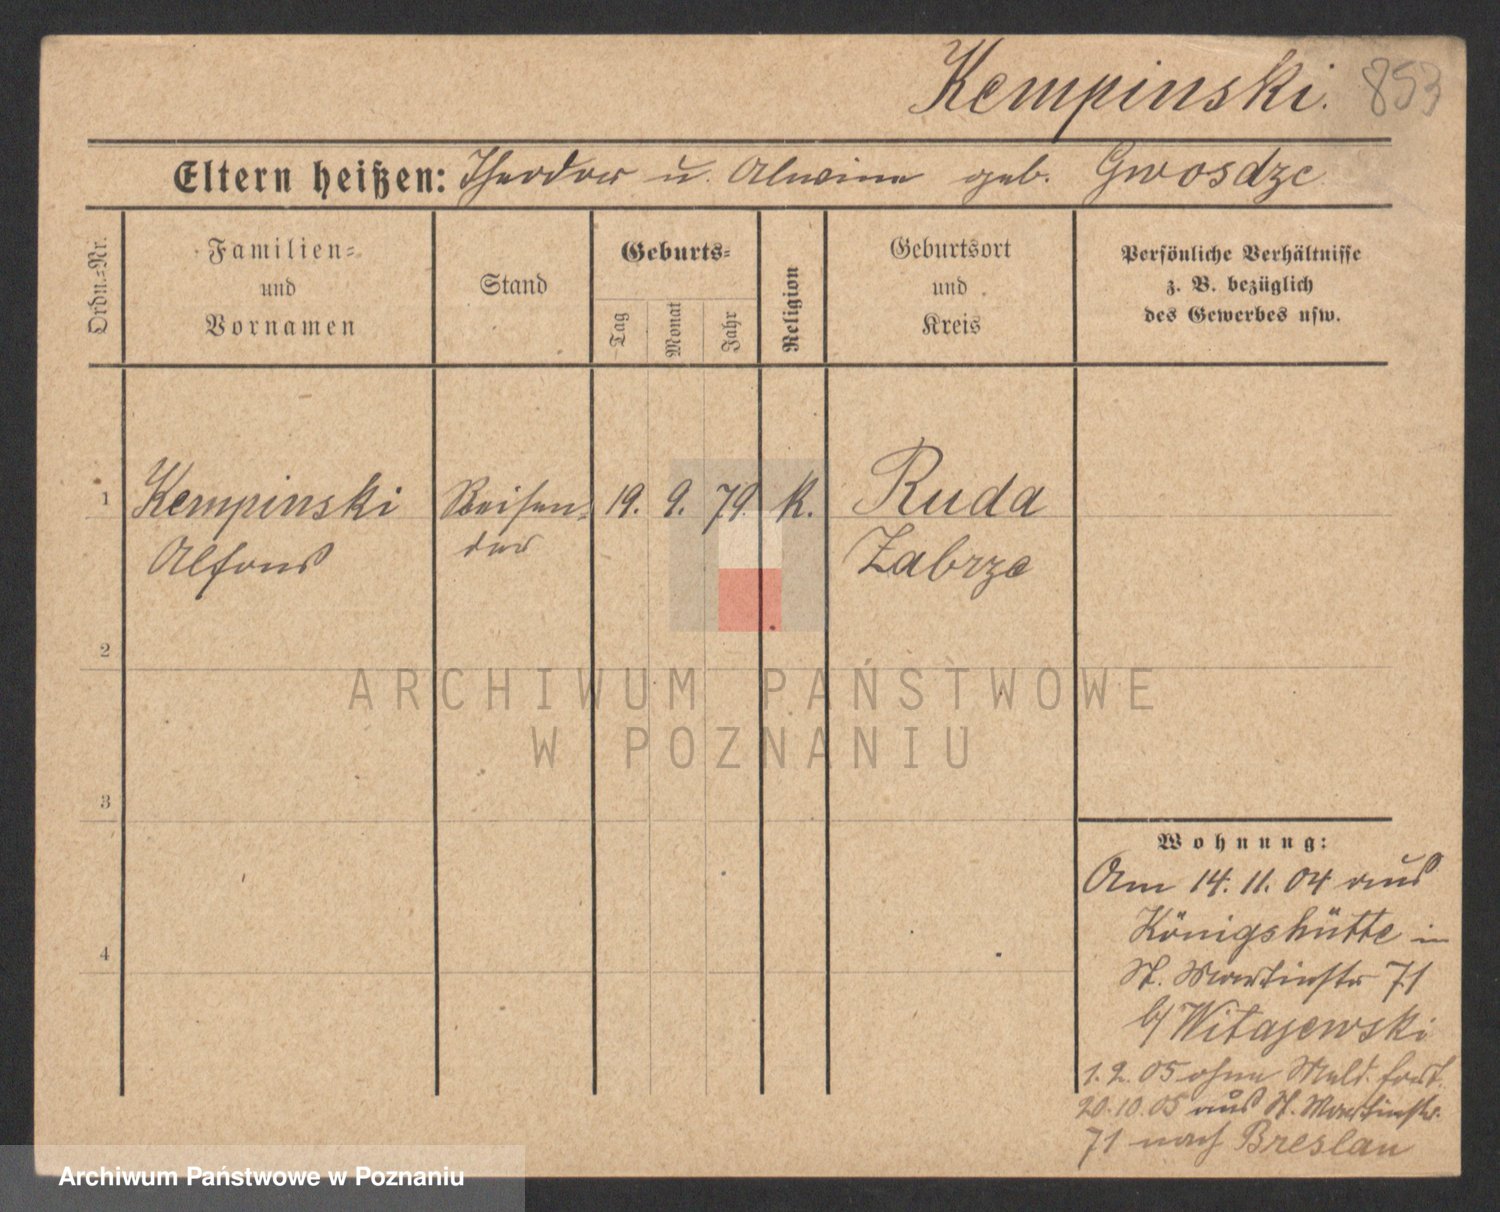 Kempinski. 853
Eltern heißen: Theodor u. Alwine geb. Gwosdze
Ordn.=Nr.
Familien=
und
Vornamen
Stand
Geburts=
Tag
Monat
Jahr
Religion
Geburtsort
und
Kreis
Persönliche Verhältnisse
z. B. bezüglich
des Gewerbes usw.
1 Kempinski Reisen= 19. 9. 79. K. Ruda
Alfons der Zabrze
2
3
4
Wohnung:
Am 14. 11. 04 aus
Königshütte in
St. Martinstr 71
b/ Witajewski
1. 2. 05 ohne Meld. fort.
20. 10. 05 aus St. Martinstr.
71 nach Breslau
ARCHIWUM PAŃSTWOWE
W POZNANIU
Archiwum Państwowe w Poznaniu